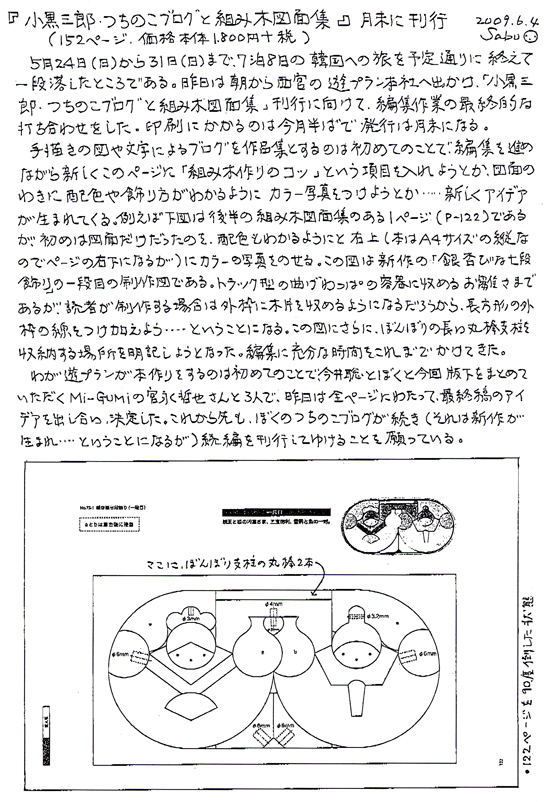 『小黒三郎・つちのこブログと組み木図面集』月末に刊行
2009.6.4
(152ページ、価格本体1,800円+税)
Sabu
5月24日(日)から31日(日)まで、7泊8日の韓国への旅を予定通りに終えて
一段落したところである。昨日は朝から西宮の遊プラン本社へ出かけ、「小黒三
郎・つちのこブログと組み木図面集」刊行に向けて、編集作業の最終的な
打ち合わせをした。印刷にかかるのは今月半ばで発行は月末になる。
手描きの図や文字によるブログを作品集とするのは初めてのことで、編集を進め
ながら新しくこのページに「組み木作りのコツ」という項目を入れようとか、図面の
わきに配色や飾り方がわかるようにカラー写真をつけようとか……新しくアイデア
が生まれてくる。例えば下図は後半の組み木図面集のある1ページ(P-122)である
が初めは図面だけだったのを、配色もわかるようにと右上(本はA4サイズの縦な
のでページの右下になるが)にカラーの写真をのせる。この図は新作の「銀杏びな七段
飾り」の一段目の制作図である。トラック型の曲げわっぱの容器に収めるお雛さまで
あるが読者が制作する場合は外枠に木片を収めるようになるだろうから、長方形の外
枠の線をつけ加えよう……ということになる。この図にさらに、ぼんぼりの長い丸棒支柱を
収納する場所を明記しようとなった。編集に充分な時間をこれまでかけてきた。
わが遊プランが本作りをするのは初めてのことで、今井聡とぼくと今回版下をまとめて
いただくMi-GuMiの宮永哲也さんと3人で、昨日は全ページにわたって、最終稿のアイ
デアを出し合い、決定した。これから先も、ぼくのつちのこブログが続き(それは新作が
生まれ……ということになるが)続編を刊行してゆけることを願っている。
一段目
ここに、ぼんぼり支柱の丸棒2本
φ4mm
φ3mm
φ3.2mm
φ6mm
a
b
φ6mm
φ6mm
φ6mm
122
・122ページを90度倒した状態